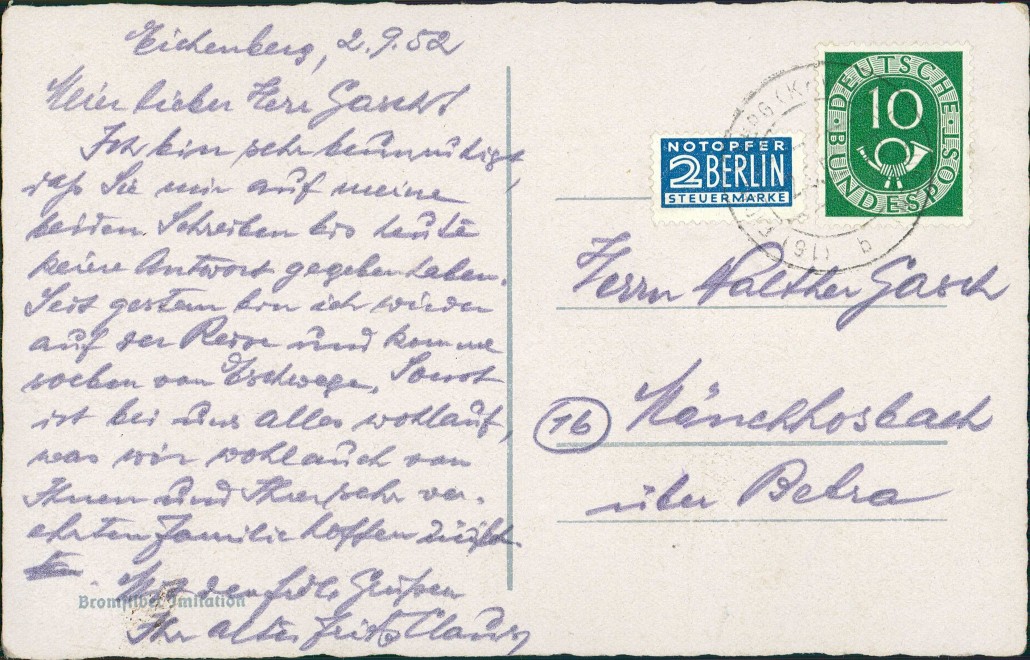 Eichenberg, 2.9.52
Mein lieber Herr Gasch!
Ich bin sehr beunruhigt,
daß Sie mir auf meine
beiden Schreiben bis heute
keine Antwort gegeben haben.
Seit gestern bin ich wieder
auf der Reise und komme
soeben von Eschwege. Sonst
ist bei uns alles wohlauf,
was wir wohl auch von
Ihnen und Ihrer sehr ver-
ehrten Familie hoffen
Mit den frdl. Grüßen
Ihr alter Fritz
Bromsilber-Imitation
NOTOPFER
2 BERLIN
STEUERMARKE
DEUTSCHE BUNDESPOST
10
(16)
b
Herrn Walther Gasch
16
Mönchhosbach
über Bebra